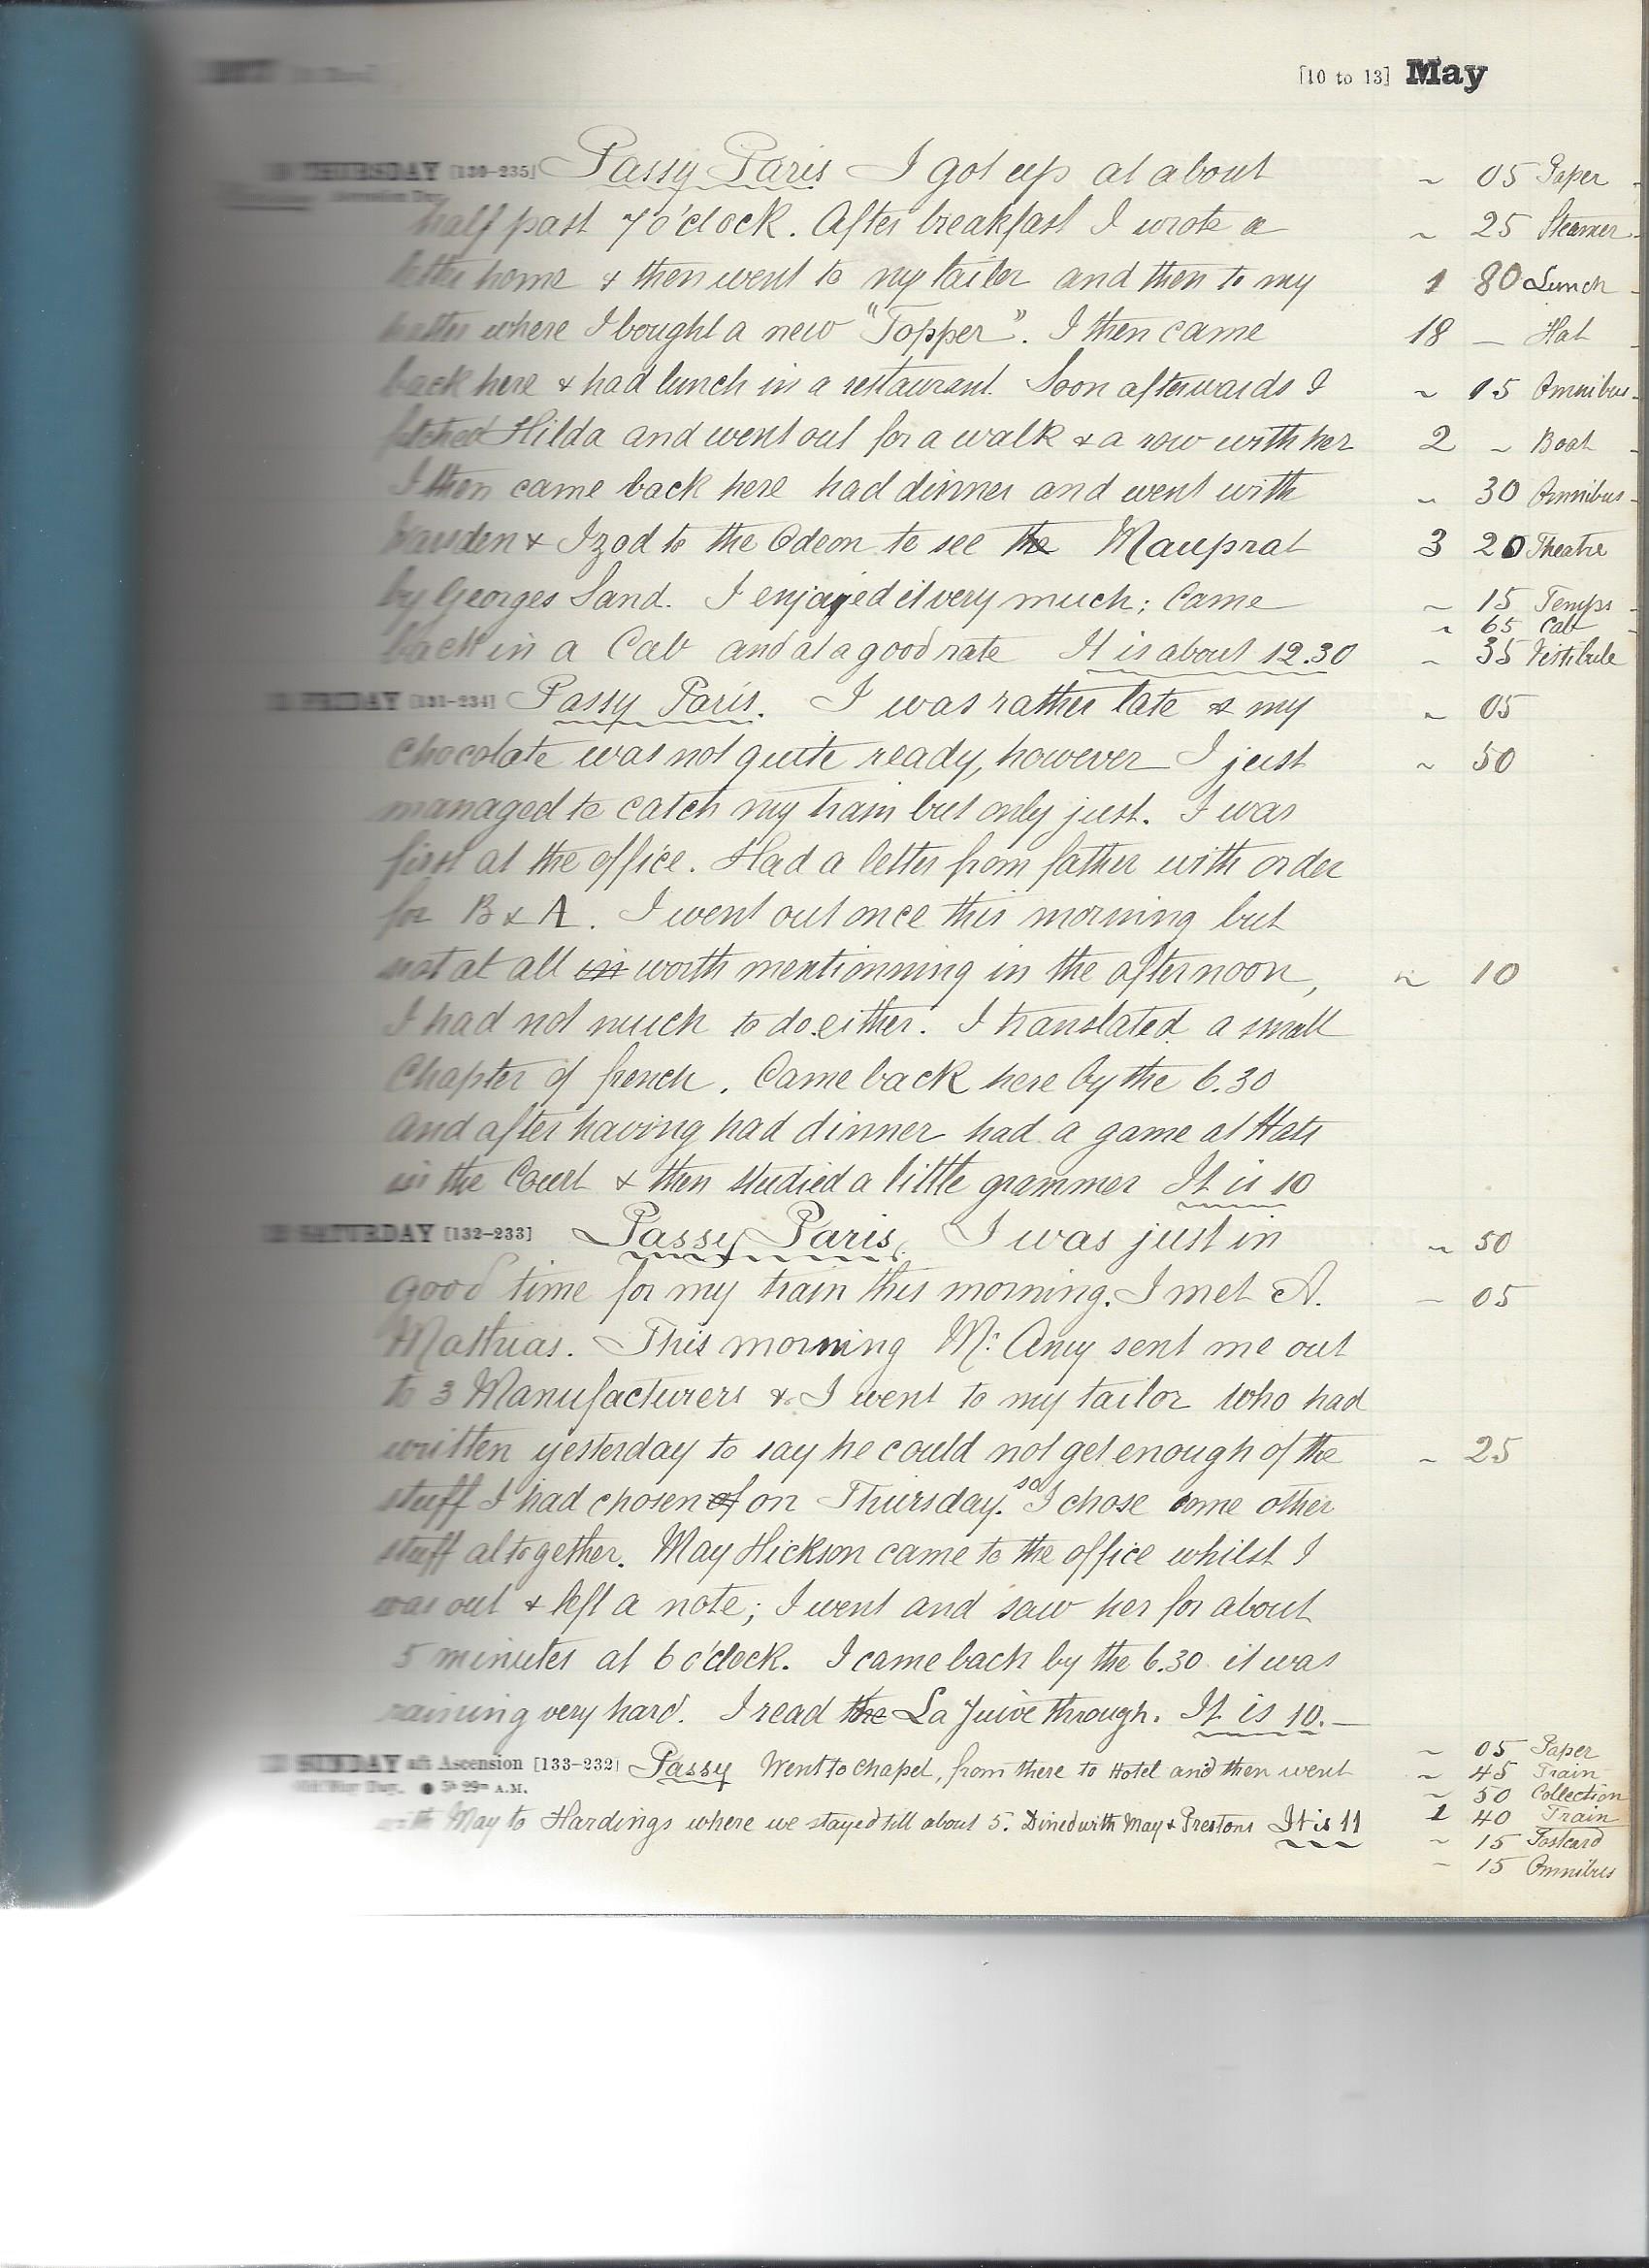 [10 to 13] May
THURSDAY [130-235] Passy Paris I got up at about ~ 05 Paper
half past 7 o'clock. After breakfast I wrote a ~ 25 Steamer
letter home & then went to my tailor and then to my 1 80 Lunch
hatter where I bought a new "Topper". I then came 18 — Hat
back here & had lunch in a restaurant. Soon afterwards I ~ 15 Omnibus
fetched Hilda and went out for a walk & a row with her 2 ~ Boat
I then came back here had dinner and went with ~ 30 Omnibus
& Izod to the Odeon to see the Mauprat 3 20 Theatre
by Georges Sand. I enjoyed it very much; Came ~ 15 Temps
~ 65 Cab
back in a Cab and at a good rate It is about 12.30 ~ 35 Vestibule
FRIDAY [131-234] Passy Paris. I was rather late & my ~ 05
chocolate was not quite ready, however I just ~ 50
managed to catch my train but only just. I was
first at the office. Had a letter from father with order
for B & A. I went out once this morning but
not at all in worth mentionning in the afternoon, ~ 10
I had not much to do either. I translated a small
Chapter of french. Came back here by the 6.30
and after having had dinner had a game at Hats
in the Court & then studied a little grammer It is 10
SATURDAY [132-233] Passy Paris. I was just in ~ 50
good time for my train this morning. I met A. — 05
Mathias. This morning Mr. Amy sent me out
to 3 Manufacturers & I went to my tailor who had
written yesterday to say he could not get enough of the ~ 25
stuff I had chosen of on Thursday. so I chose some other
stuff altogether. May Hickson came to the office whilst I
was out & left a note; I went and saw her for about
5 minutes at 6 o'clock. I came back by the 6.30 it was
raining very hard. I read the La Juive through. It is 10.—
~ 05 Paper
SUNDAY aft Ascension [133-232] Passy Went to Chapel, from there to Hotel and then went ~ 45 Train
5h 29m A.M. ~ 50 Collection
with May to Hardings where we stayed till about 5. Dined with May & Prestons It is 11 1 40 Train
~ 15 Postcard
— 15 Omnibus